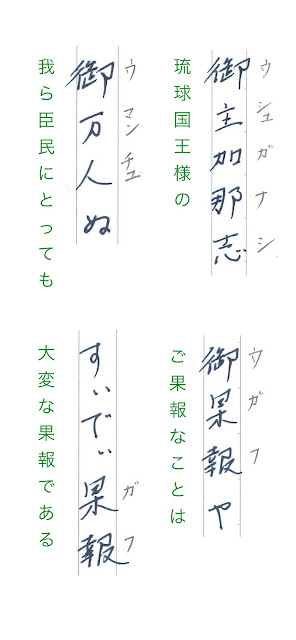 御主加那志
ウシュガナシ
琉球国王様の
御果報や
ウガフ
ご果報なことは
御万人ぬ
ウマンチュ
我ら臣民にとっても
すぃでぃ果報
ガフ
大変な果報である